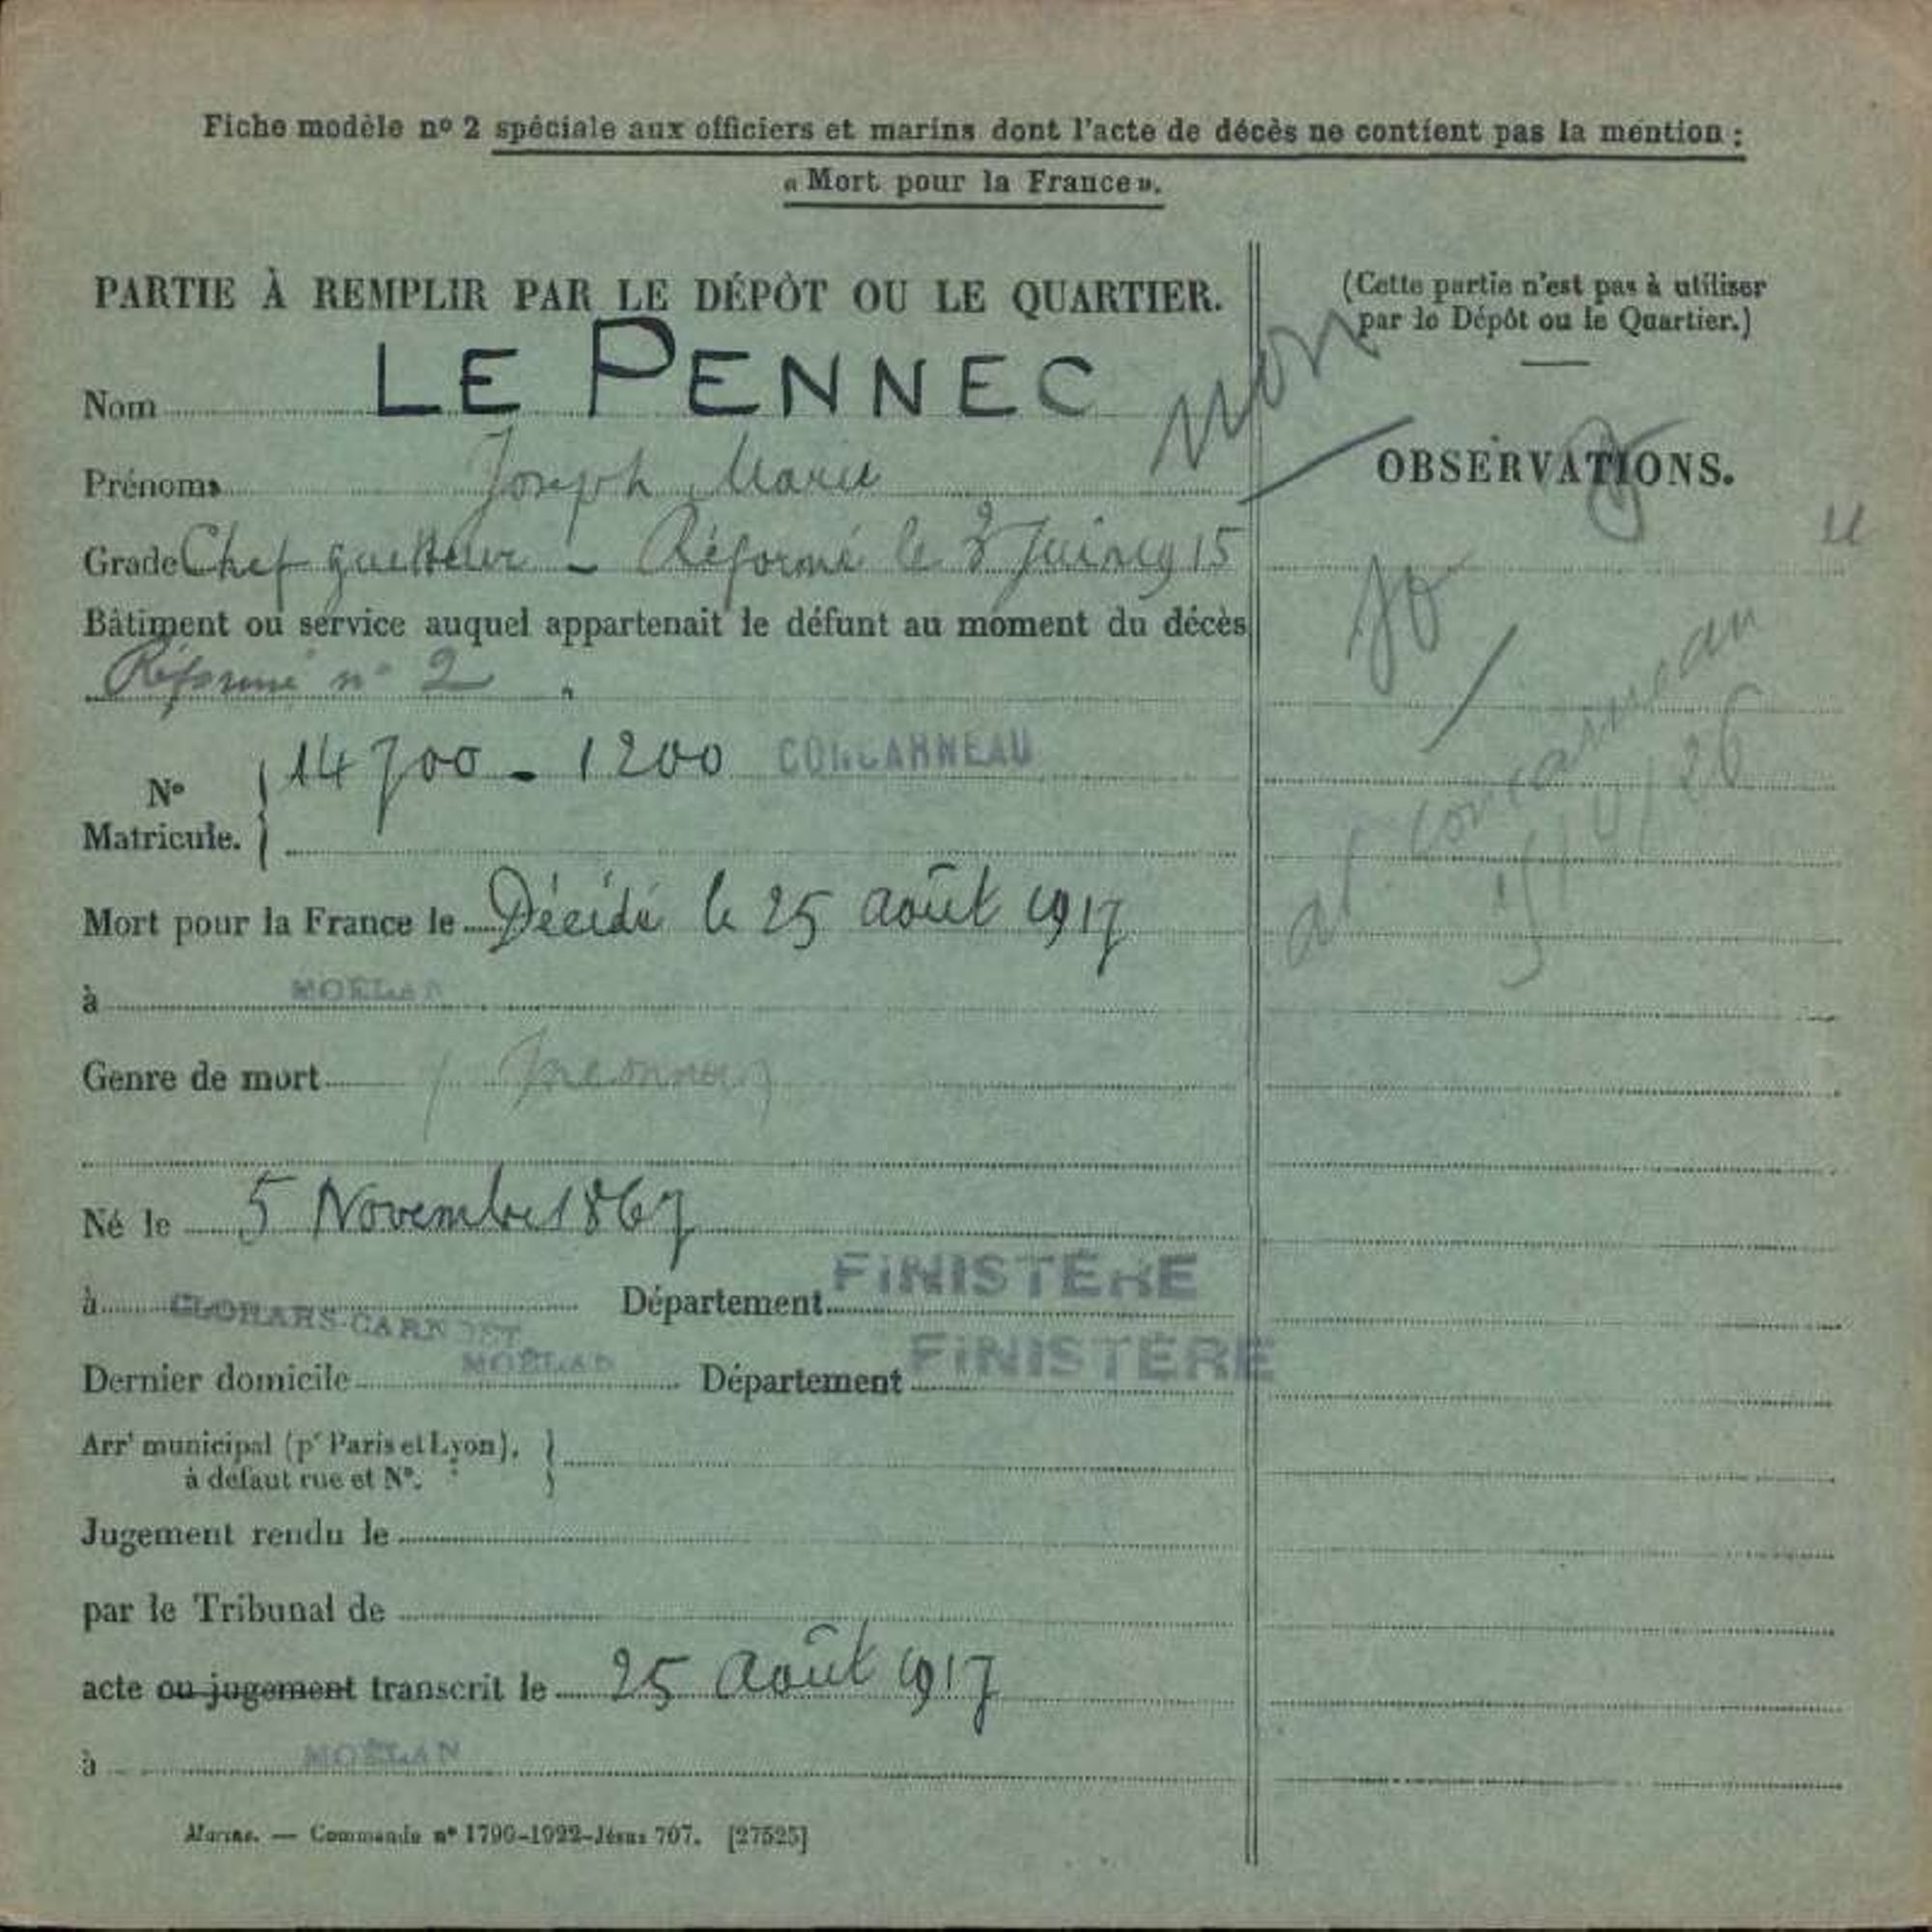 Fiche modèle nº 2 spéciale aux officiers et marins dont l'acte de décès ne contient pas la mention :
« Mort pour la France ».
PARTIE À REMPLIR PAR LE DÉPÔT OU LE QUARTIER.
(Cette partie n'est pas à utiliser
par le Dépôt ou le Quartier.)
Nom LE PENNEC
non
Prénoms Joseph Marie
OBSERVATIONS.
Grade Chef guetteur - Réformé le 3 Juin 1915
Bâtiment ou service auquel appartenait le défunt au moment du décès
Réformé nº 2
Nº Matricule. 14700 - 1200 CONCARNEAU
at Concarneau
5/4/26
Mort pour la France le Décédé le 25 août 1917
à MOËLAN
Genre de mort Inconnu
Né le 5 Novembre 1867
à CLOHARS-CARNOET Département FINISTÈRE
Dernier domicile MOËLAN Département FINISTÈRE
Arrt municipal (pr Paris et Lyon),
à défaut rue et Nº.
Jugement rendu le
par le Tribunal de
acte ou jugement transcrit le 25 août 1917
à MOËLAN
Marine. — Commande nº 1790-1922-Jésus 707. [27525]